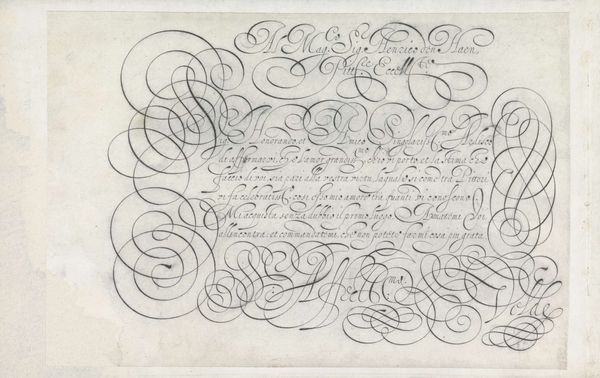 Al Mag.co Sig. Henrico den Haen
Pitt.re Ecc.mo
Sig. Honorando, et Amico Singolariss.mo Ardisco
di affermarvi, che l'amor grandiss.mo ch'io vi porto, et la stima ch'io
faccio di voi, sia pari alla vostra virtu, laquale si come tra Pittori
vi fa celebratiss. cosi esso mio amore tra quanti vi conoscono
Mi acquista senza dubbio il primo luogo. Amatemi Voi
all'incontro: et commandatemi, che non potete farmi cosa piu grata.
Affett.mo